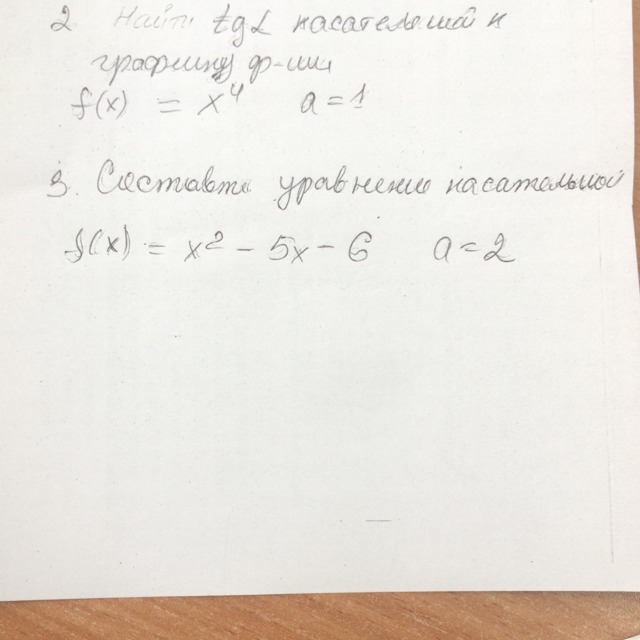 2 Найти tgα касательной к
графику ф-ции
f(x) = x⁴ a = 1
3. Составть уравнение касательной
f(x) = x² - 5x - 6 a = 2